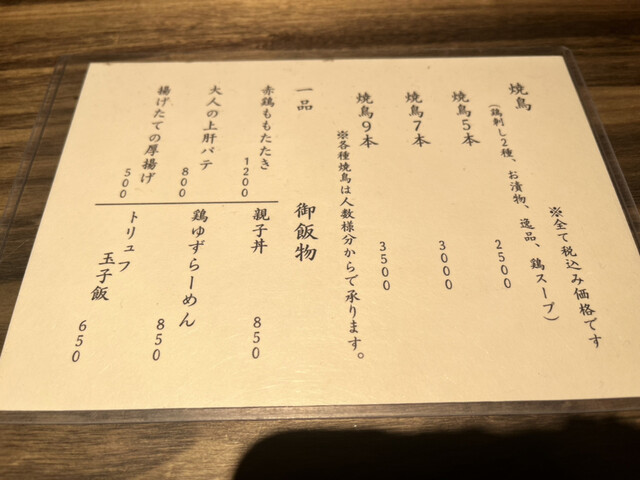 ※全て税込み価格です
焼鳥
(鶏刺し2種、お漬物、逸品、鶏スープ)
焼鳥5本 2500
焼鳥7本 3000
焼鳥9本 3500
※各種焼鳥は人数様分からで承ります。
一品
赤鶏ももたたき 1200
大人の上肝パテ 800
揚げたての厚揚げ 500
御飯物
親子丼 850
鶏ゆずらーめん 850
トリュフ
玉子飯 650